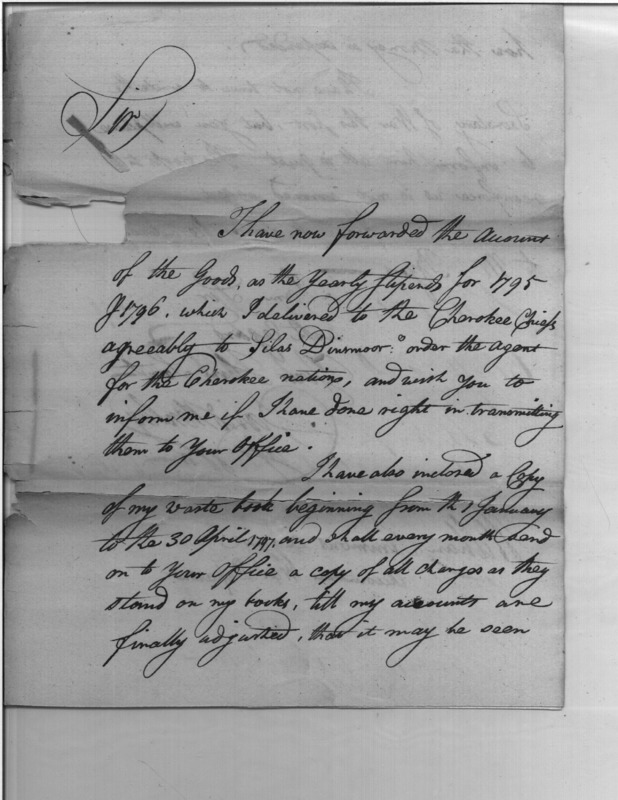 Sir
I have now forwarded the account
of the Goods, as the Yearly Stipends for 1795
& 1796. which I delivered to the Cherokee Chiefs
agreeably to Silas Dinsmoor's order the agent
for the Cherokee nations, and wish You to
inform me if I have done right in transmitting
them to Your Office.
I have also inclosed a Copy
of my waste book beginning from th 1 January
to the 30 April 1797. and shall every month send
on to Your Office a copy of all charges as they
stand on my books, till my accounts are
finally adjusted, that it may be seen